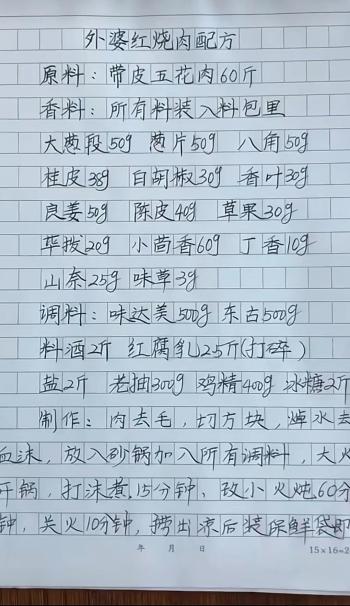 外婆红烧肉配方
原料：带皮五花肉60斤
香料：所有料装入料包里
大葱段50g 葱片50g 八角50g
桂皮38g 白胡椒30g 香叶30g
良姜50g 陈皮40g 草果30g
荜拨20g 小茴香60g 丁香10g
山奈25g 味草3g
调料：味达美500g 东古500g
料酒2斤 红腐乳2.5斤(打碎)
盐2斤 老抽300g 鸡精400g 冰糖2斤
制作：肉去毛，切方块，焯水去
血沫，放入砂锅加入所有调料，大火
开锅，打沫煮15分钟、改小火炖60分
钟，关火10分钟，捞出凉后装保鲜袋
年 月 日
15×16=2